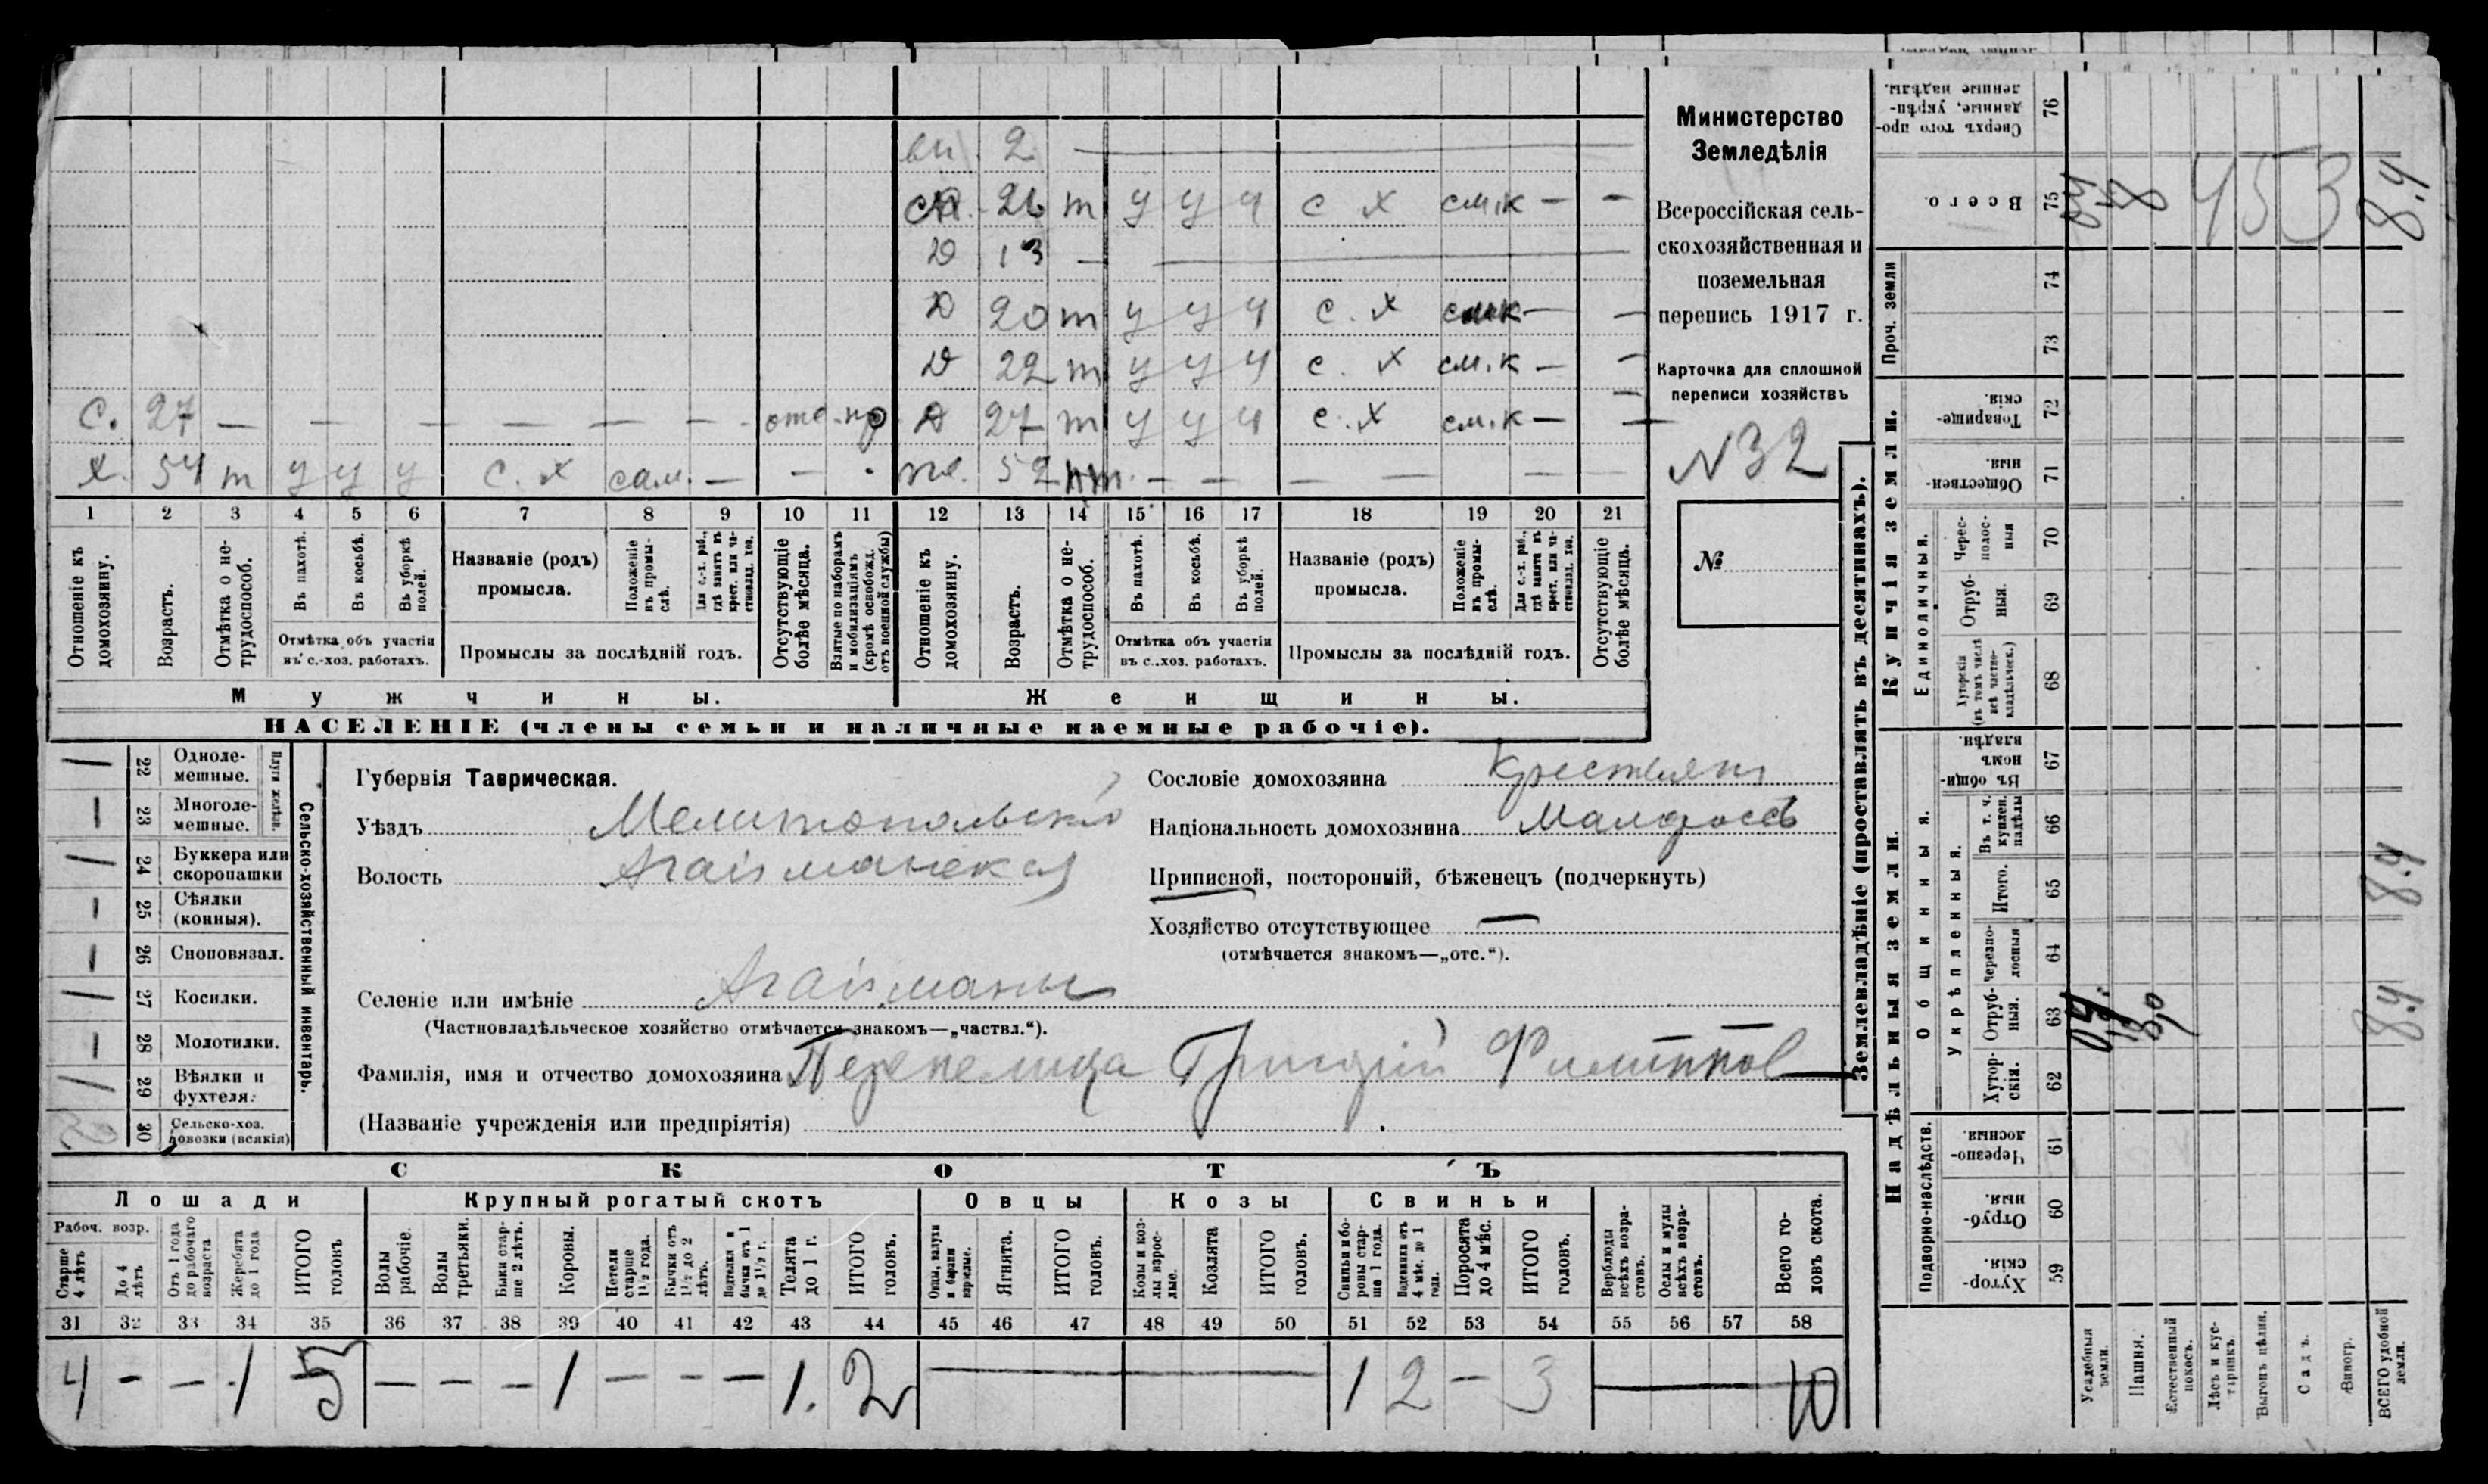 вн. 2 —
сн. 26 т у у у с х см.к — —
д 13 —
д 20 т у у у с. х см.к — —
д 22 т у у у с. х см.к — —
С. 27 — — — — — — — отс. д 27 т у у у с. х см.к — —
х. 54 т у у у с. х сам. — — . же. 52 нт. — — — — — —
1 2 3 4 5 6 7 8 9 10 11 12 13 14 15 16 17 18 19 20 21
Отношеніе къ домохозяину.
Возрастъ.
Отмѣтка о нетрудоспособ.
Въ пахотѣ.
Въ косьбѣ.
Въ уборкѣ полей.
Отмѣтка объ участіи въ с.-хоз. работахъ.
Названіе (родъ) промысла.
Положеніе въ промыслѣ.
Для с.-х. раб., гдѣ занятъ въ крест. или частновлад. хоз.
Промыслы за послѣдній годъ.
Отсутствующіе болѣе мѣсяца.
Взятые по наборамъ и мобилизаціямъ (кромѣ освобожд. отъ военной службы)
Отношеніе къ домохозяину.
Возрастъ.
Отмѣтка о нетрудоспособ.
Въ пахотѣ.
Въ косьбѣ.
Въ уборкѣ полей.
Отмѣтка объ участіи въ с..хоз. работахъ.
Названіе (родъ) промысла.
Положеніе въ промыслѣ.
Для с.-х. раб., гдѣ занятъ въ крест. или частновлад. хоз.
Промыслы за послѣдній годъ.
Отсутствующіе болѣе мѣсяца.
Мужчины. Женщины.
НАСЕЛЕНІЕ (члены семьи и наличные наемные рабочіе).
Министерство
Земледѣлія
Всероссійская сель-
скохозяйственная и
поземельная
перепись 1917 г.
Карточка для сплошной
переписи хозяйствъ
N 32
№
Сельско-хозяйственный инвентарь.
Плуги желѣзн.
22 Одноле-
мешные. /
23 Многоле-
мешные. |
24 Буккера или
скоропашки /
25 Сѣялки
(конныя). |
26 Сноповязал. |
27 Косилки. /
28 Молотилки. |
29 Вѣялки и
фухтеля. /
30 Сельско-хоз.
повозки (всякія) 2
Губернія Таврическая.
Уѣздъ Мелитопольскій
Волость Агайманская
Селеніе или имѣніе Агайманы
(Частновладѣльческое хозяйство отмѣчается знакомъ—„частвл.“).
Фамилія, имя и отчество домохозяина Перепелица Григорій Филиппов
(Названіе учрежденія или предпріятія)
Сословіе домохозяина Крестьянин
Національность домохозяина Малоросс
Приписной, посторонній, бѣженецъ (подчеркнуть)
Хозяйство отсутствующее —
(отмѣчается знакомъ—„отс.“).
СКОТЪ
Лошади Крупный рогатый скотъ Овцы Козы Свиньи
Рабоч. возр.
Старше 4 лѣтъ
До 4 лѣтъ
Отъ 1 года до рабочаго возраста
Жеребята до 1 года
ИТОГО головъ
Волы рабочіе.
Волы третьяки.
Быки старше 2 лѣтъ.
Коровы.
Нетели старше 1½ года.
Бычки отъ 1½ до 2 лѣтъ.
Телята до 1 г.
ИТОГО головъ.
Ягнята.
ИТОГО головъ.
Козы и козлы взрослые.
Козлята
ИТОГО головъ.
Свиньи и боровы старше 1 года.
Поросята до 4 мѣс.
ИТОГО головъ.
Верблюды всѣхъ возрастовъ.
Ослы и мулы всѣхъ возрастовъ.
Всего головъ скота.
31 32 33 34 35 36 37 38 39 40 41 42 43 44 45 46 47 48 49 50 51 52 53 54 55 56 57 58
4 — — 1 5 — — — 1 — — — 1. 2 — 1 2 — 3 — 10
Землевладѣніе (проставлять въ десятинахъ).
Купчія земли.
Надѣльныя земли.
76 Сверхъ того проданные, укрѣпленные надѣлы.
75 Всего.
Проч. земли
74
73
72 Товарищескія.
71 Общественныя.
Единоличныя.
70 Чересполосныя
69 Отрубныя.
68 Хуторскія (въ томъ числѣ всѣ частновладѣльческ.)
Общинныя.
67 Въ общинномъ владѣн.
Укрѣпленныя.
66 Въ т. ч. куплен. надѣлы
65 Итого.
64 Черезполосныя
63 Отрубныя.
62 Хуторскія.
Подворно-наслѣдств.
61 Черезполосныя.
60 Отрубныя.
59 Хуторскія.
Усадебныя земли.
Пашня.
Естественный покосъ.
Лѣсъ и кустарникъ.
Выгонъ цѣлин.
Садъ.
Виногр.
ВСЕГО удобной земли.
453
8.4
8.4
8.4
0,4
8,0